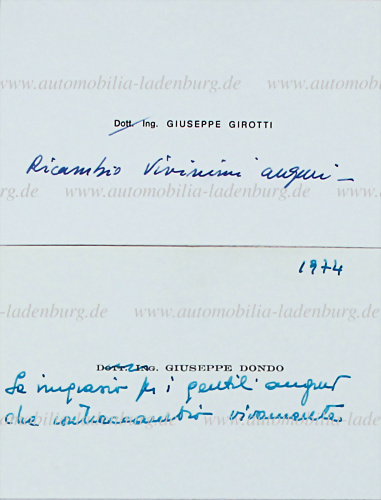 www.automobilia-ladenburg.de
Dott. Ing. GIUSEPPE GIROTTI
Ricambio Vivissimi auguri —
rg.de www.automobilia-ladenburg.de www
1974
www.automobilia-ladenburg.de
DOTT. ING. GIUSEPPE DONDO
La ringrazio per i gentili auguri
che contraccambio vivamente.
rg.de www.automobilia-ladenburg.de www